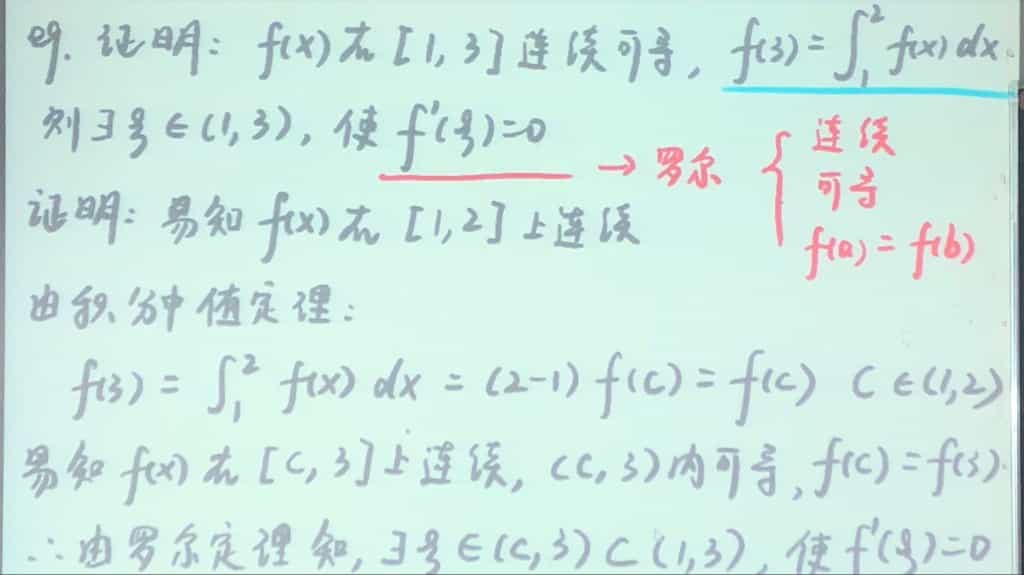 eg. 证明: f(x)在[1,3]连续可导, f(3)=∫₁² f(x)dx.
则∃ξ∈(1,3), 使f'(ξ)=0
→罗尔 { 连续
可导
f(a)=f(b)
证明: 易知f(x)在[1,2]上连续
由积分中值定理:
f(3)=∫₁² f(x)dx=(2-1)f(c)=f(c) C∈(1,2)
易知f(x)在[C,3]上连续, (C,3)内可导, f(c)=f(3).
∴由罗尔定理知, ∃ξ∈(C,3)⊂(1,3), 使f'(ξ)=0